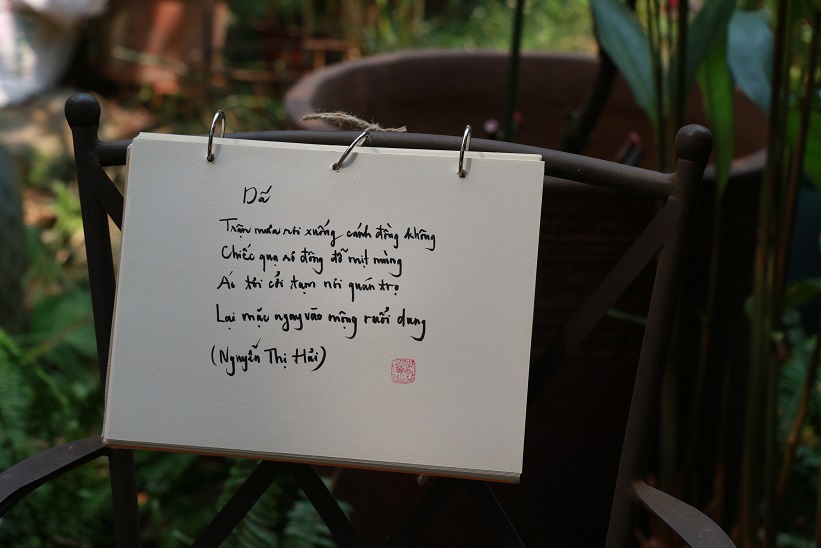 Dã
Trận mưa rơi xuống cánh đồng không
Chiếc quạ sà đông đỗ mịt mùng
Áo tôi cởi tạm nơi quán trọ
Lại mặc ngay vào mộng ruổi dung
(Nguyễn Thị Hải)